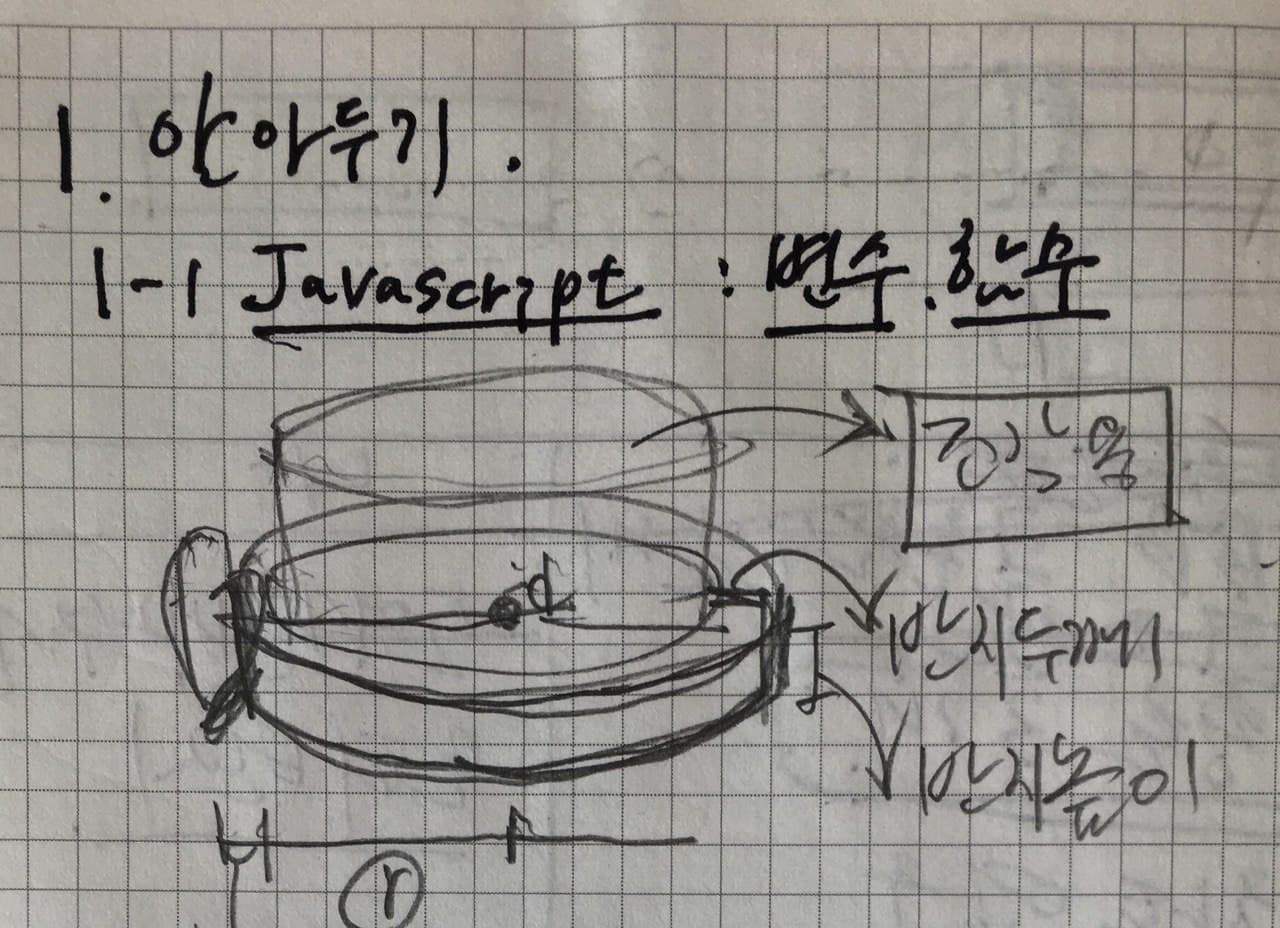 1. 알아두기.
1-1 Javascript : 변수. 함수
d
반지두께
반지높이
r